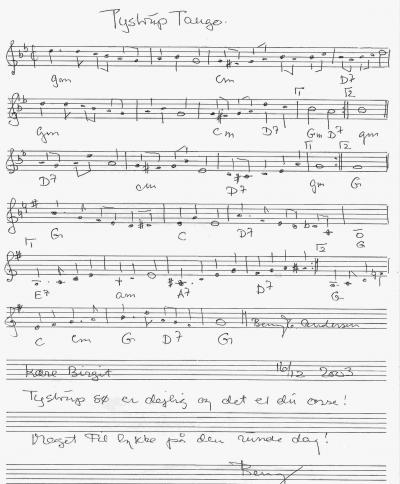 Tystrup Tango.
gm Cm D7
1 2
Gm Cm D7 Gm D7 gm
1 2
D7 cm D7 gm G
G C D7 G
1 2
E7 am A7 D7 G
C Cm G D7 G Benny E. Andersen
Kære Birgit 16/12 2003
Tystrup sø er dejlig og det er du osse!
Meget til lykke på den runde dag!
Benny